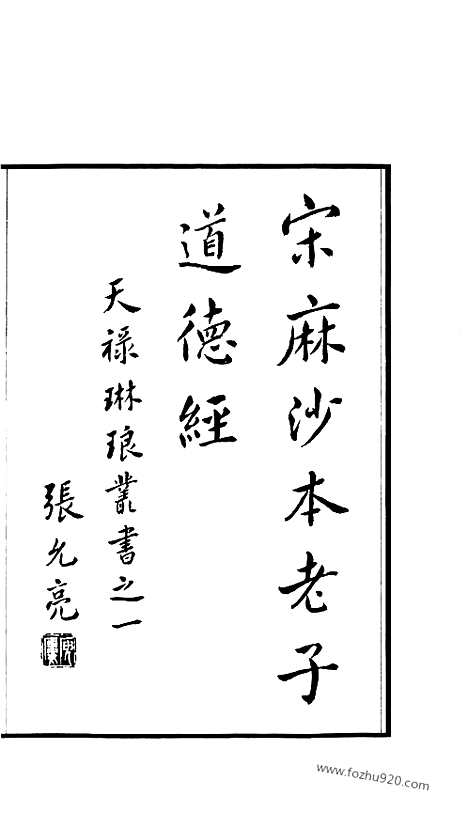 宋麻沙本老子
道德經
天祿琳琅叢書之一
張允亮
www.fozhu920.com